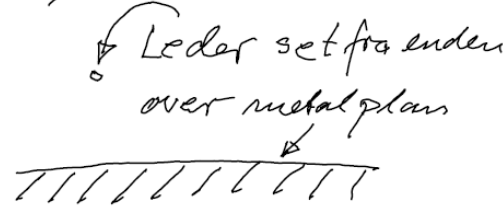 Leder set fra enden
over metalplan